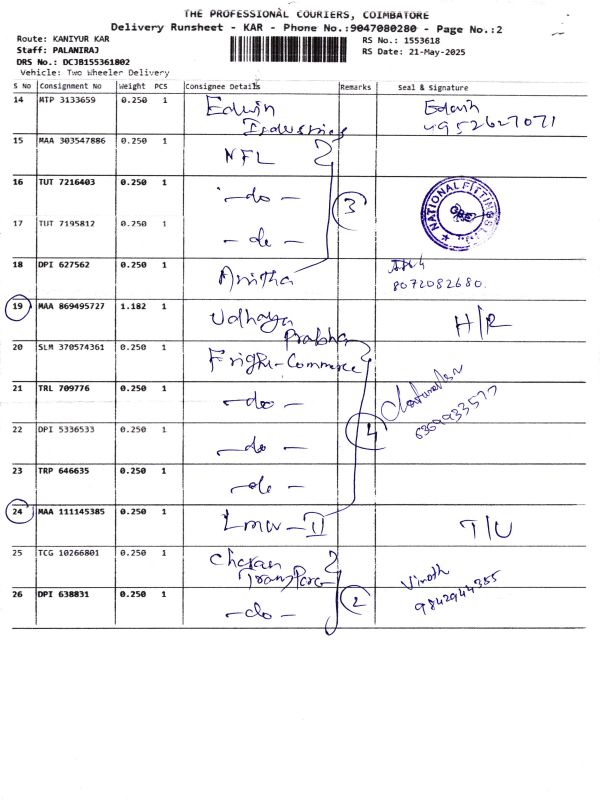 THE PROFESSIONAL COURIERS, COIMBATORE
Delivery Runsheet - KAR - Phone No.:9047080280 - Page No.:2
Route: KANIYUR KAR
RS No.: 1553618
Staff: PALANIRAJ
RS Date: 21-May-2025
DRS No.: DCJB155361802
Vehicle: Two Wheeler Delivery
S No Consignment No Weight PCS Consignee Details Remarks Seal & Signature
14 MTP 3133659 0.250 1 Edwin Edwin
Industries 4952627071
15 MAA 303547886 0.250 1 NFL
16 TUT 7216403 0.250 1 -do-
3
NATIONAL FITTINGS
17 TUT 7195812 0.250 1 -do-
18 DPI 627562 0.250 1 Anitha
8072082680.
19 MAA 869495727 1.182 1 Udhaya H/R
Prabha
20 SLM 370574361 0.250 1 Fright-Commerce
21 TRL 709776 0.250 1 -do-
6369933577
22 DPI 5336533 0.250 1 -do- 4
23 TRP 646635 0.250 1 -do-
24 MAA 111145385 0.250 1 Lmw-II T/U
25 TCG 10266801 0.250 1 Cheran
Vinoth
26 DPI 638831 0.250 1 -do- 2 9842944355